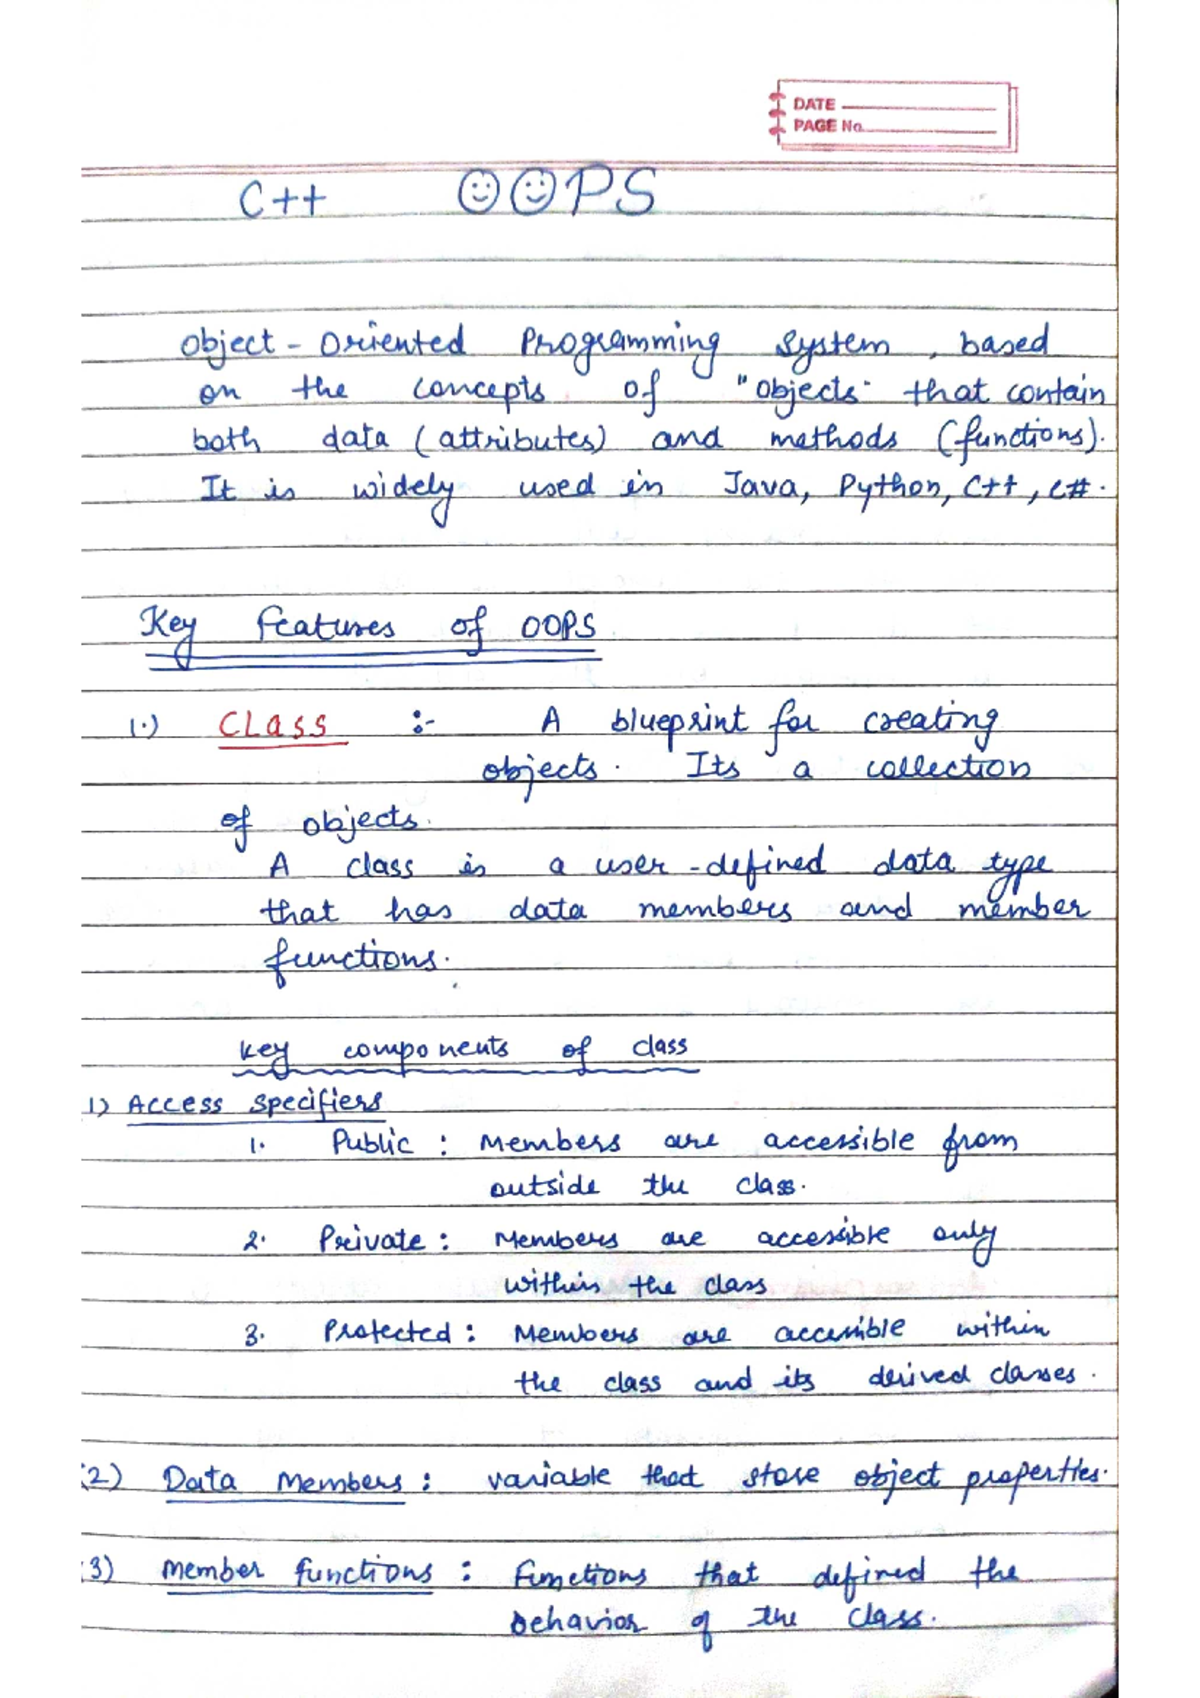 DATE
PAGE No.
C++ OOPS
Object - Oriented Programming System, based
on the concepts of "Objects" that contain
both data (attributes) and methods (functions).
It is widely used in Java, Python, C++, C#.
Key Features of OOPS
1.) CLASS :- A blueprint for creating
objects. Its a collection
of objects.
A class is a user-defined data type
that has data members and member
functions.
Key components of class
1) Access Specifiers
1. Public : Members are accessible from
outside the class.
2. Private : Members are accessible only
within the class
3. Protected : Members are accessible within
the class and its derived classes.
(2) Data Members : variable that store object properties.
(3) Member functions : Functions that defined the
behavior of the class.